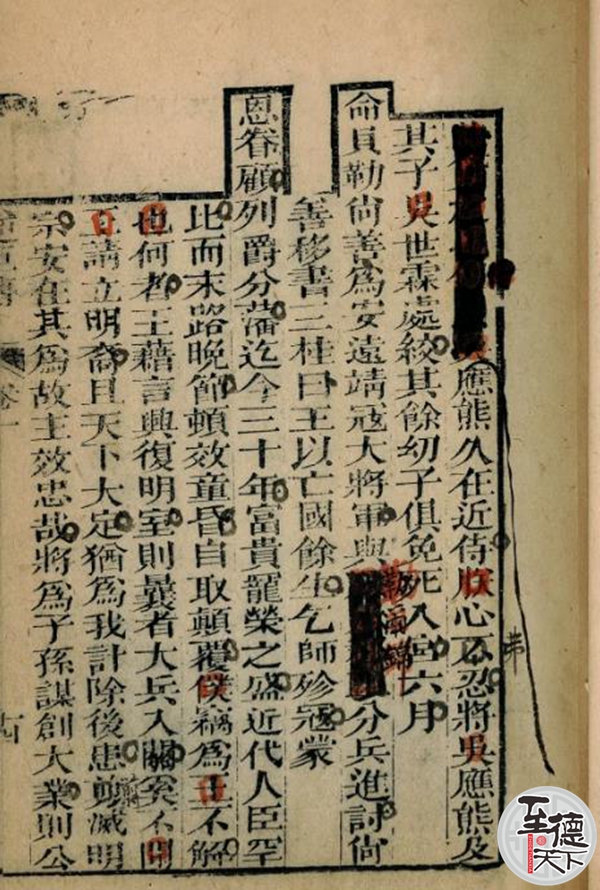 應熊久在近侍朕心不忍將吳應熊及
其子吳世霖處絞其餘幼子俱免死入宮六月
命貝勒尚善爲安遠靖寇大將軍與分兵進討尚
善移書三桂曰王以亡國餘生乞師殄寇蒙
恩眷顧列爵分藩迄今三十年富貴寵榮之盛近代人臣罕
比而末路晚節頓效童昏自取顛覆僕竊爲王不解
也何者王藉言興復明室則曩者大兵入關奚不聞
王請立明裔且天下大定猶爲我計除後患剪滅明
宗安在其爲故主效忠哉將爲子孫謀創大業則公
卷一
至德天下